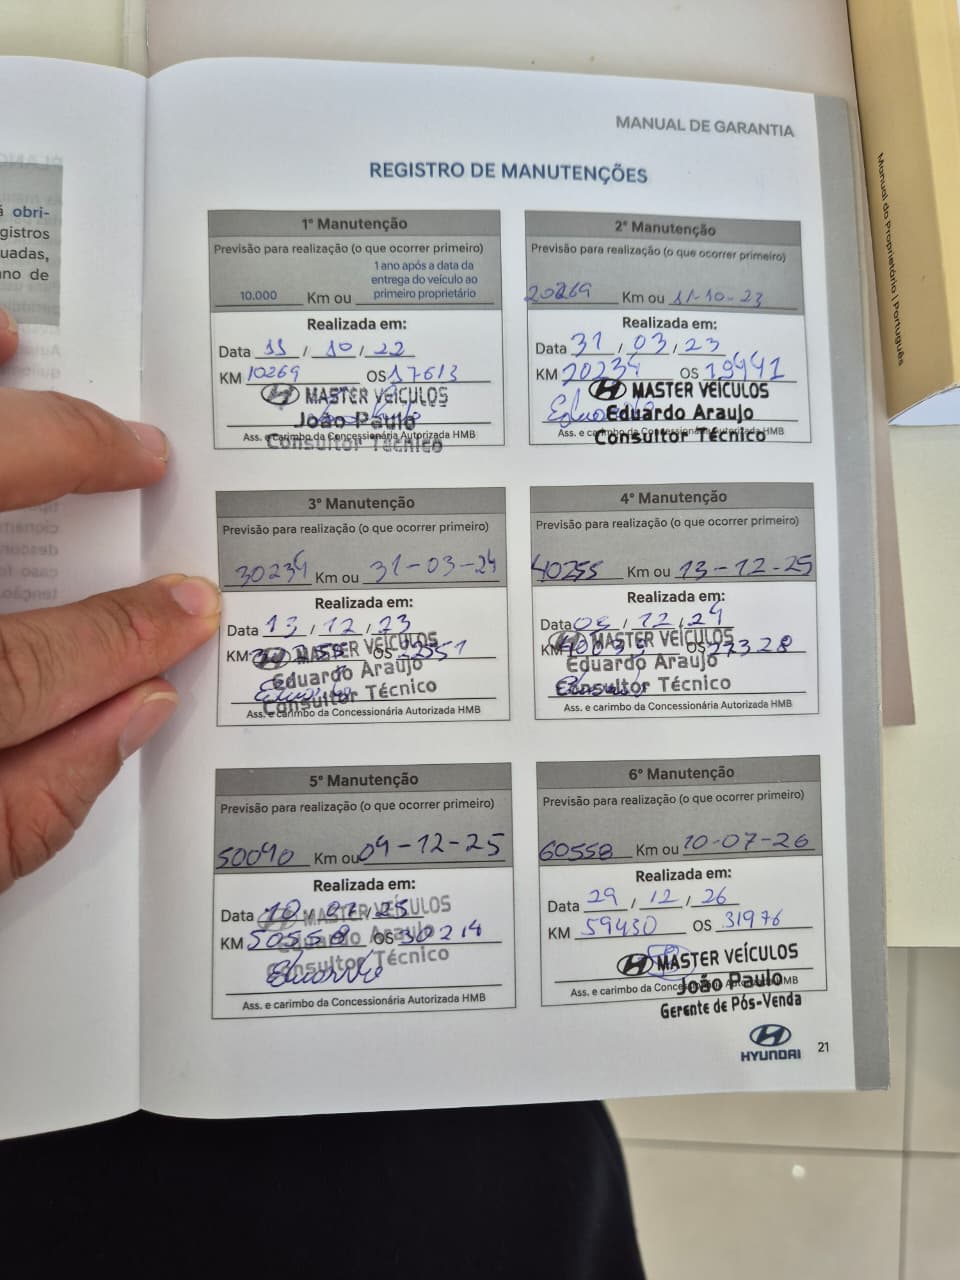 MANUAL DE GARANTIA
REGISTRO DE MANUTENÇÕES
á obri-
gistros
uadas,
no de
1ª Manutenção
Previsão para realização (o que ocorrer primeiro)
10.000 Km ou 1 ano após a data da entrega do veículo ao primeiro proprietário
Realizada em:
Data 11 / 10 / 22
KM 10269 OS 17613
MASTER VEÍCULOS
João Paulo
Consultor Técnico
Ass. e carimbo da Concessionária Autorizada HMB
2ª Manutenção
Previsão para realização (o que ocorrer primeiro)
20269 Km ou 11-10-23
Realizada em:
Data 31 / 03 / 23
KM 20234 OS 19941
MASTER VEÍCULOS
Eduardo Araujo
Consultor Técnico
Ass. e carimbo da Concessionária Autorizada HMB
3ª Manutenção
Previsão para realização (o que ocorrer primeiro)
30234 Km ou 31-03-24
Realizada em:
Data 13 / 12 / 23
KM OS
MASTER VEÍCULOS
Eduardo Araujo
Consultor Técnico
Ass. e carimbo da Concessionária Autorizada HMB
4ª Manutenção
Previsão para realização (o que ocorrer primeiro)
40255 Km ou 13-12-25
Realizada em:
Data 05 / 12 / 24
KM OS 27328
MASTER VEÍCULOS
Eduardo Araujo
Consultor Técnico
Ass. e carimbo da Concessionária Autorizada HMB
5ª Manutenção
Previsão para realização (o que ocorrer primeiro)
50090 Km ou 09-12-25
Realizada em:
Data 10 / 07 / 25
KM 50558 OS 30214
MASTER VEÍCULOS
Eduardo Araujo
Consultor Técnico
Ass. e carimbo da Concessionária Autorizada HMB
6ª Manutenção
Previsão para realização (o que ocorrer primeiro)
60558 Km ou 10-07-26
Realizada em:
Data 29 / 12 / 26
KM 59430 OS 31976
MASTER VEÍCULOS
João Paulo
Gerente de Pós-Venda
Ass. e carimbo da Concessionária Autorizada HMB
HYUNDAI
21
Manual do Proprietário | Português